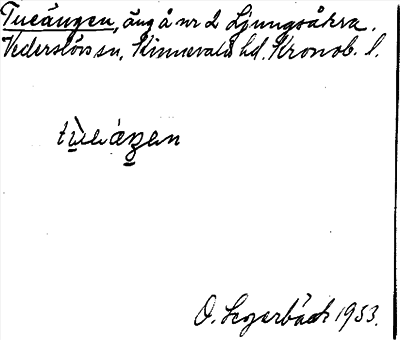 Tueängen, äng å nr 2 Ljungsåkra,
Vederslövs sn, Kinnevalds hd. Kronob. l.
O. Segerbäck 1953.